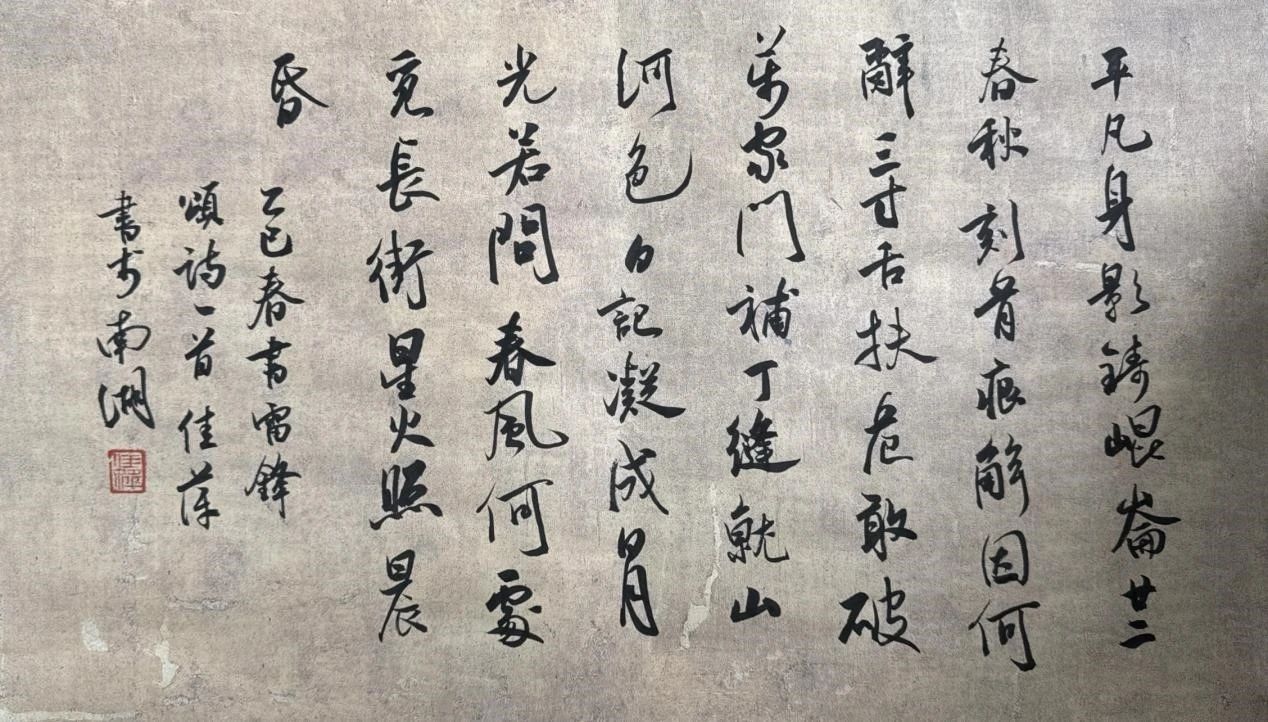 平凡身影鑄崐崙廿二
春秋刻骨痕解因何
辭三寸舌扶危敢破
萬家門補丁縫就山
河色日記凝成日月
光若問春風何處
覓長街星火照晨
昏
乙巳春書雷鋒
頌詩一首佳萍
書於南湖